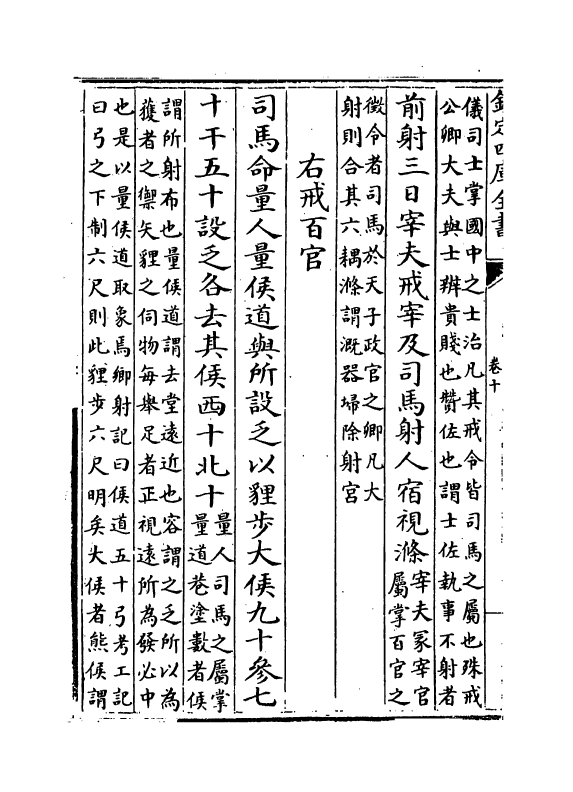 欽定四庫全書
卷十
儀司士掌國中之士治凡其戒令皆司馬之屬也殊戒
公卿大夫與士辨貴賤也贊佐也謂士佐執事不射者
前射三日宰夫戒宰及司馬射人宿視滌宰夫冢宰官
屬掌百官之
徵令者司馬於天子政官之卿凡大
射則合其六耦滌謂溉器埽除射宮
右戒百官
司馬命量人量侯道與所設乏以貍步大侯九十參七
十干五十設乏各去其侯西十北十量人司馬之屬掌
量道巷塗數者侯
謂所射布也量侯道謂去堂遠近也容謂之乏所以為
獲者之禦矢貍之伺物每舉足者正視遠所為發必中
也是以量侯道取象焉鄉射記曰侯道五十弓考工記
曰弓之下制六尺則此貍步六尺明矣大侯者熊侯謂